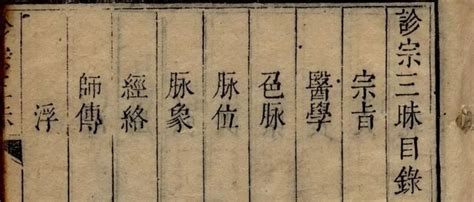 診宗三昧目錄
宗旨
醫學
色脉
脉位
脉象
經絡
師傳
浮